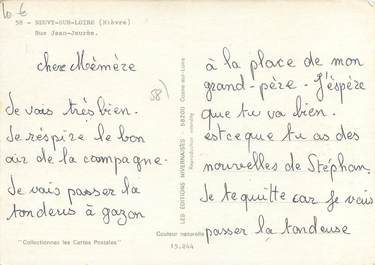 10 €
58 - NEUVY-SUR-LOIRE (Nièvre)
Rue Jean-Jaurès.
cher Mémère
58)
Je vais très bien.
Je réspire le bon
air de la compagne.
Je vais passer la
tonderis à gazon
"Collectionnez les Cartes Postales"
LES ÉDITIONS NIVERNAISES 58200 Cosne-sur-Loire
Reproduction interdite
Couleur naturelle
15.244
à la place de mon
grand-père. J'éspère
que tu va bien.
est ce que tu as des
nouvelles de Stéphan.
Je te quitte car je vais
passer la tondeuse